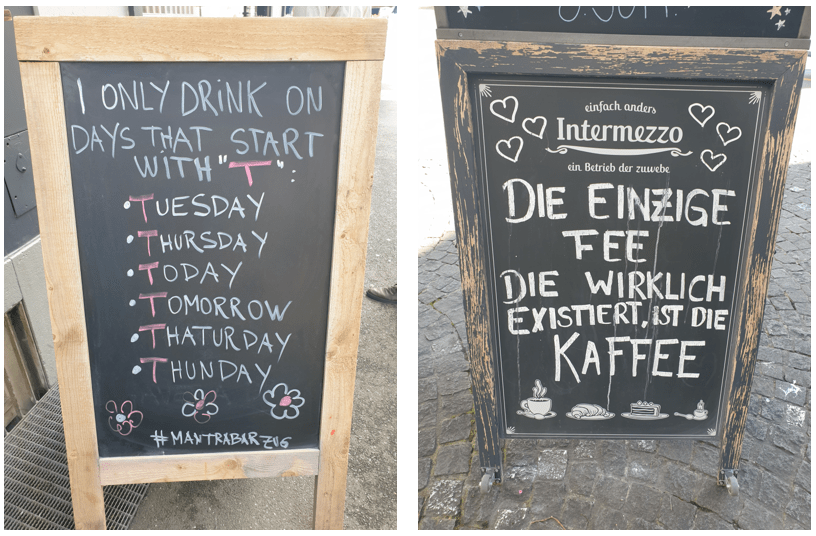 I ONLY DRINK ON
DAYS THAT START
WITH "T":
• TUESDAY
• THURSDAY
• TODAY
• TOMORROW
• THATURDAY
• THUNDAY
#MANTRABARZUG
einfach anders
Intermezzo
ein Betrieb der zuwebe
DIE EINZIGE
FEE
DIE WIRKLICH
EXISTIERT, IST DIE
KAFFEE